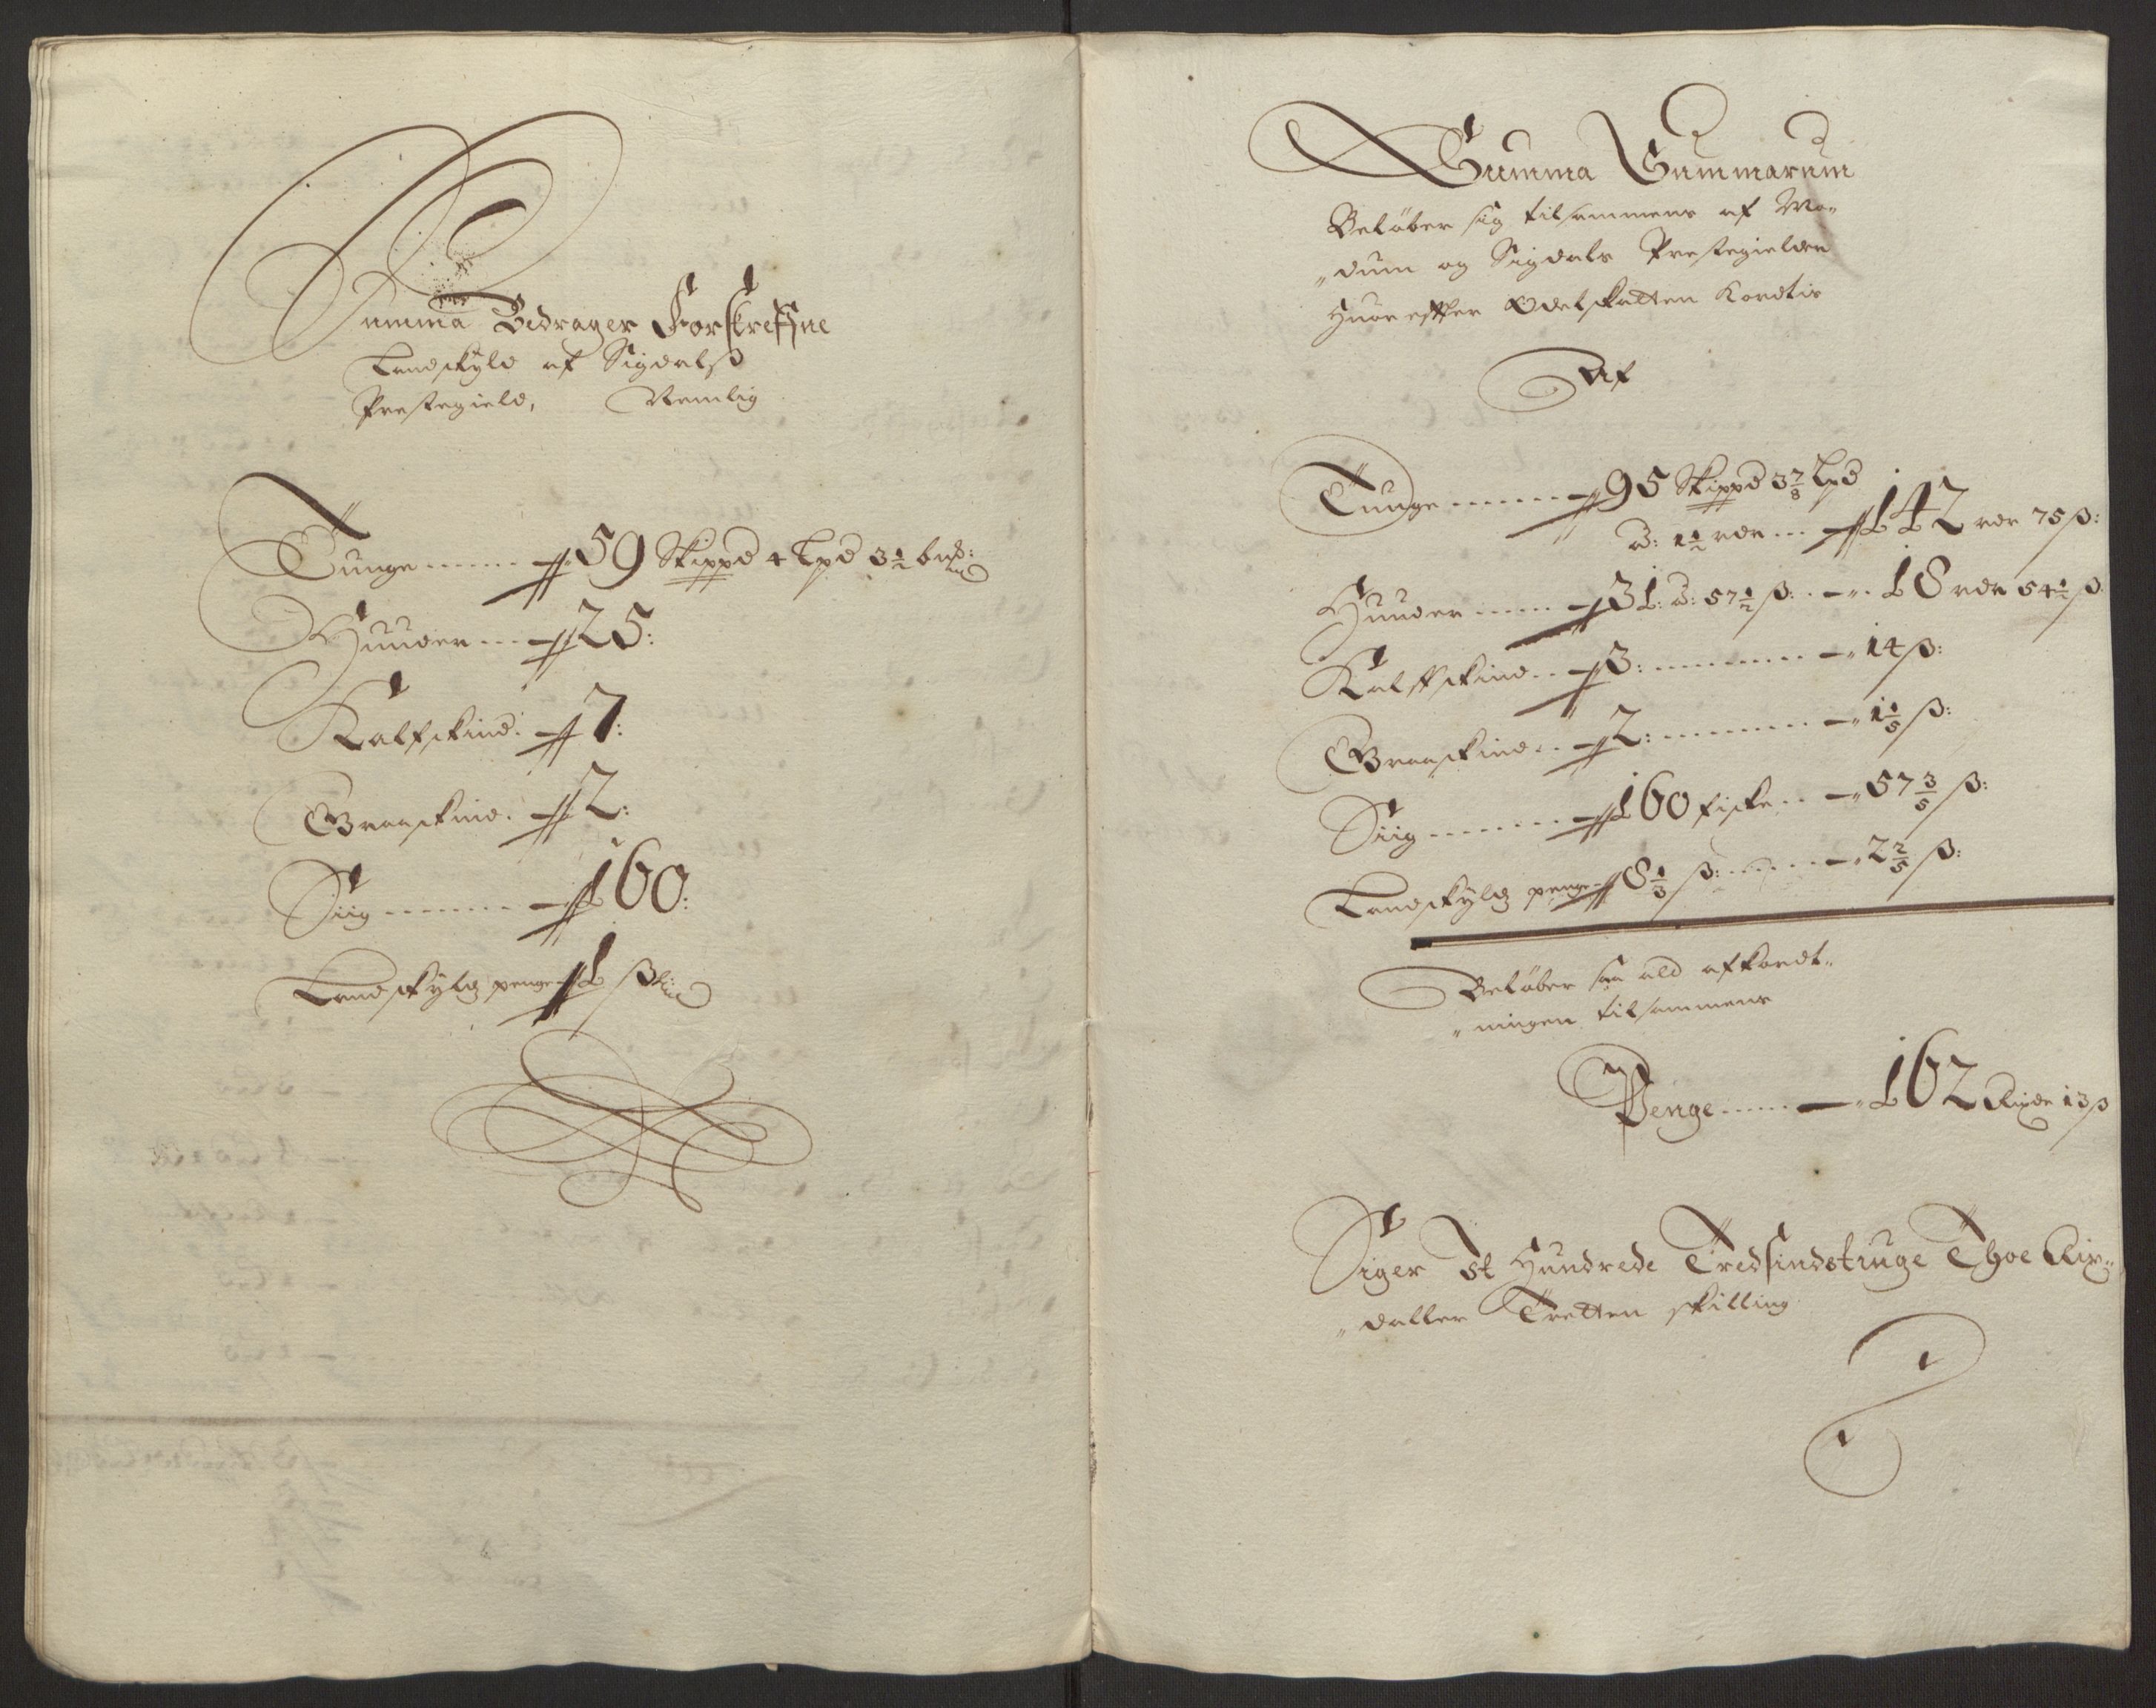 Summa Bedrager Forskrefne
Landskyld af Sigdalß
Prestegield, Nemlig
Tunge ...... 59 Skippd 4 Lpd 3½
Huuder ... 25:
Kalfskind: 7:
Graaskind. 2:
Siig ....... 160:
Landskyld penge 1 ß
Summa Summarum
Beløber sig tilsammens af Mo„
„dum og Sigdals Prestegielder
Huorefter Odelskatten Kortis
Af
Tunge ....... 95 Skippd 3⅞ Lpd
â: 1½ rdr ... 142 rdr 75 ß:
Huuder ..... 31: â: 57½ ß: .. 18 rdr 54½ ß.
Kalfskind .. 3: ......... 14 ß:
Graaskind .. 2: ......... 1⅕ ß:
Siig ........ 160 fiske .. 57⅗ ß:
Landskyld penge 8⅓ ß: ..... 2⅖ ß:
Beløber saa ald afkordt„
„ningen tilsammens
Penge ..... 162 Rixdr 13 ß
Siger Et Hundrede Tredsindstiuge Thoe Rix„
„daller Tretten skilling